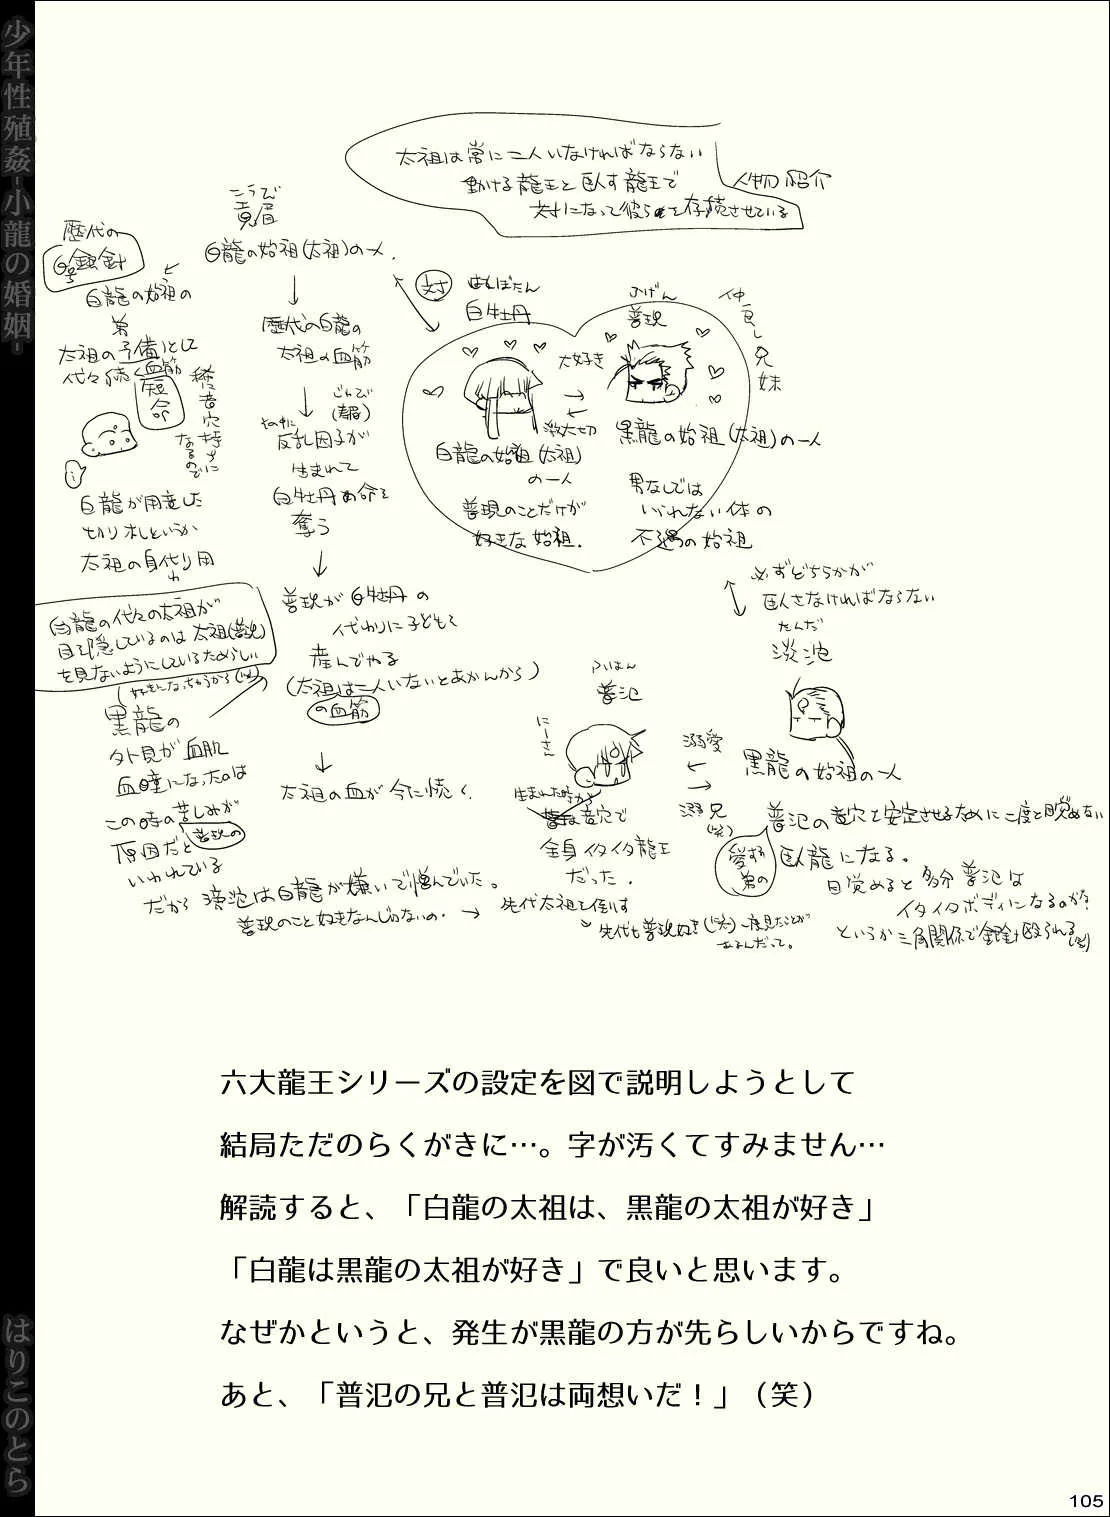 少年性殖姦-小龍の婚姻-
はりこのとら
太祖は常に二人いなければならない
動ける龍王と臥す龍王で
対になって彼らを存続させている
人物紹介
こうび
白龍の始祖(太祖)の一人.
歴代の
銀針
白龍の始祖の
弟
太祖の予備として
代々続く血筋
短命
稀に音穴持ちに
なるので
白龍が用意した
切り札というか
太祖の身代り用
白龍の代々の太祖が
目を隠しているのは太祖(普現)
を見ないようにしているためらしい
好きになっちゃうから(笑)
歴代の白龍の
太祖の血筋
その中に
反乱因子が
生まれて
白牡丹の命を
奪う
普現が白牡丹の
代わりに子どもを
産んでやる
(太祖は二人いないとあかんから)
の血筋
太祖の血が今に続く.
対
はくぼたん
白牡丹
ふげん
普現
仲良し兄妹
大好き
激大切
白龍の始祖(太祖)
の一人
普現のことだけが
好きな始祖.
黒龍の始祖(太祖)の一人
男なしでは
いられない体の
不遇の始祖
必ずどちらかが
臥さなければならない
たんだ
淡沱
黒龍の始祖の一人
ふはん
普氾
にーさん
溺愛
溺兄
(笑)
生まれた時から
音穴で
全身イタイタ龍王
だった.
普氾の音穴を安定させるために二度と目覚めない
愛する
弟の
臥龍になる。
目覚めると多分普氾は
イタイタボディになるのか?
というか三角関係で銀針に殴られる(笑)
黒龍の
外見が血肌
血瞳になったのは
この時の苦しみが
普現の
原因だと
いわれている
だから淡沱は白龍が嫌いで憎んでいた。
普現のこと好きなんじゃないの.
先代太祖を倒す
先代も普現好き(笑)一度見たことが
あるんだって。
六大龍王シリーズの設定を図で説明しようとして
結局ただのらくがきに…。字が汚くてすみません…
解読すると、「白龍の太祖は、黒龍の太祖が好き」
「白龍は黒龍の太祖が好き」で良いと思います。
なぜかというと、発生が黒龍の方が先らしいからですね。
あと、「普氾の兄と普氾は両想いだ！」（笑）
105